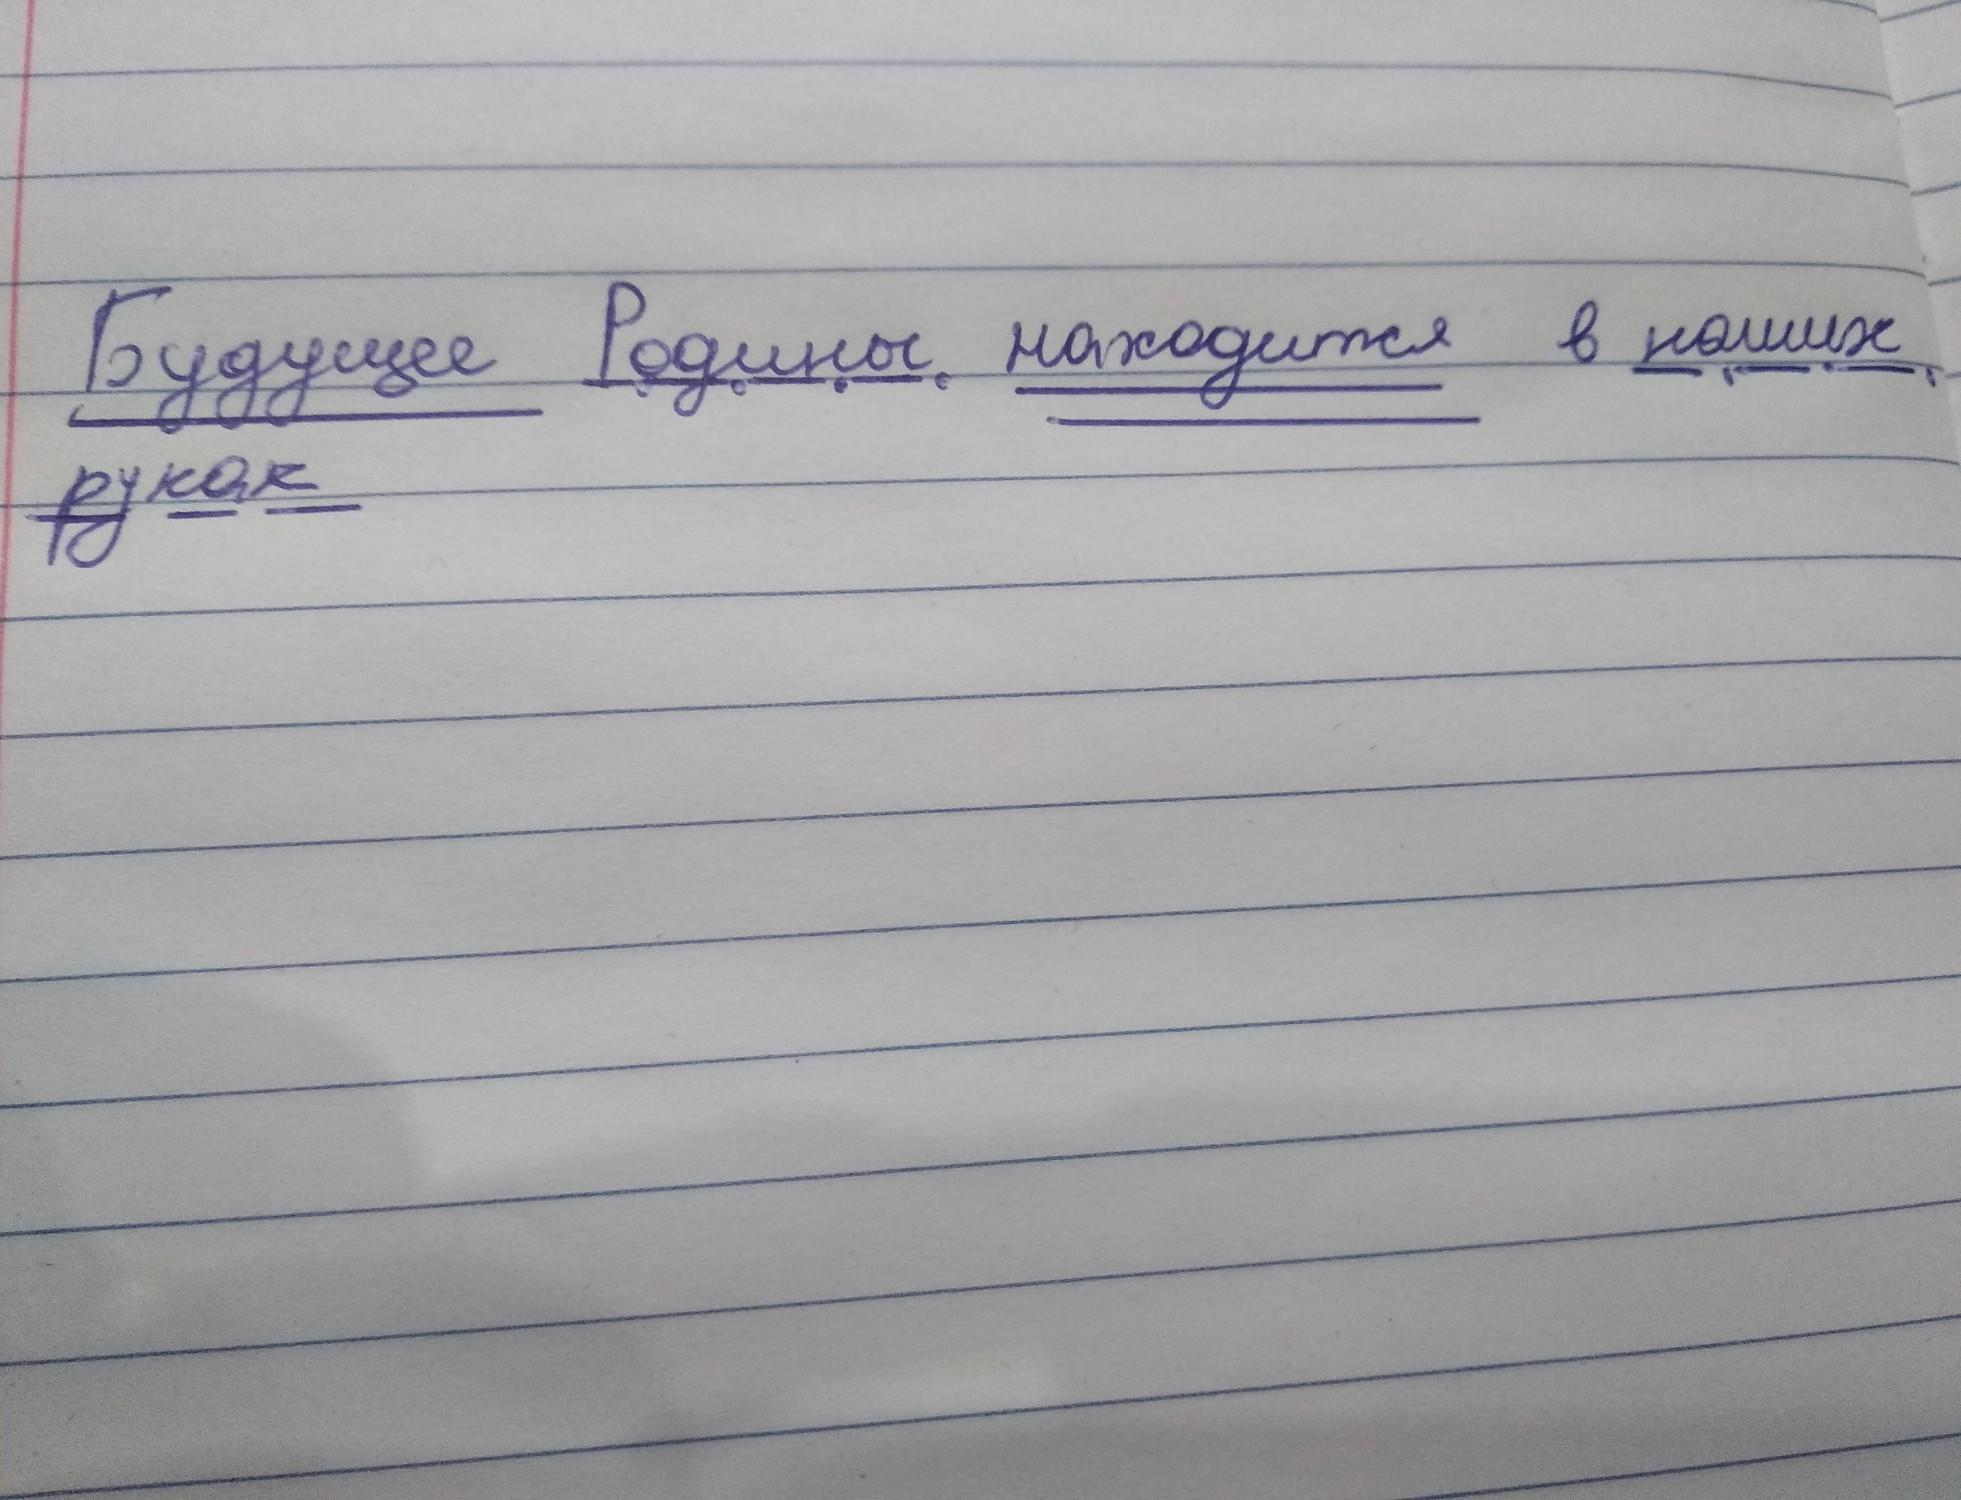 Будущее Родины находится в наших
руках